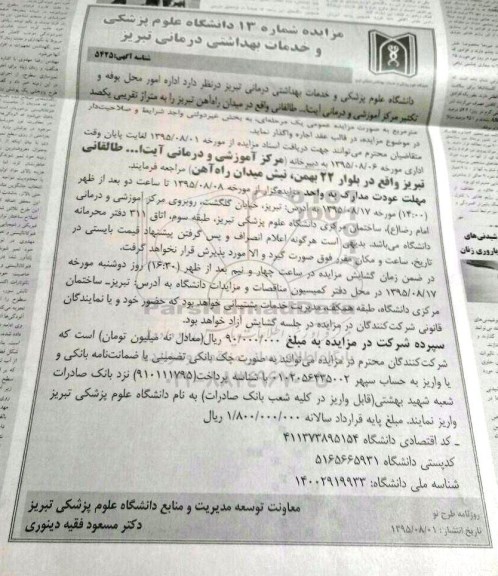 مزایده شماره ۱۳ دانشگاه علوم پزشکی
و خدمات بهداشتی درمانی تبریز
شناسه آگهی: ۵۴۲۵
دانشگاه علوم پزشکی و خدمات بهداشتی درمانی تبریز درنظر دارد اداره امور محل بوفه و
تکثیر مرکز آموزشی و درمانی آیت‌ا... طالقانی واقع در میدان راه‌آهن تبریز را به متراژ تقریبی یکصد
مترمربع به صورت مزایده عمومی یک مرحله‌ای، به بخش غیردولتی واجد شرایط و صلاحیت‌دار
در موضوع مزایده، در قالب عقد اجاره واگذار نماید.
متقاضیان محترم می‌توانند جهت دریافت اسناد مزایده از مورخه ۱۳۹۵/۰۸/۰۱ لغایت پایان وقت
اداری مورخه ۱۳۹۵/۰۸/۰۶ به دبیرخانه (مرکز آموزشی و درمانی آیت‌ا... طالقانی
تبریز واقع در بلوار ۲۲ بهمن، نبش میدان راه‌آهن) مراجعه فرمایند.
مهلت عودت مدارک به واحد مزایده‌گزار از مورخه ۱۳۹۵/۰۸/۰۸ تا ساعت دو بعد از ظهر
(۱۴:۰۰) مورخه ۱۳۹۵/۰۸/۱۷ به آدرس: تبریز، خیابان گلگشت، روبروی مرکز آموزشی و درمانی
امام رضا(ع)، ساختمان مرکزی دانشگاه علوم پزشکی تبریز، طبقه سوم، اتاق ۳۱۱ دفتر محرمانه
دانشگاه می‌باشد. بدیهی است هرگونه اعلام انصراف و پس گرفتن پیشنهاد قیمت بایستی در
تاریخ، ساعت و مکان مقرر فوق صورت گیرد و الا مورد پذیرش قرار نخواهد گرفت.
در ضمن زمان گشایش مزایده در ساعت چهار و نیم بعد از ظهر (۱۶:۳۰) روز دوشنبه مورخه
۱۳۹۵/۰۸/۱۷ در محل دفتر کمیسیون مناقصات و مزایدات دانشگاه به آدرس: تبریز- ساختمان
مرکزی دانشگاه، طبقه همکف، مدیریت خدمات پشتیبانی خواهد بود که حضور خود و یا نمایندگان
قانونی شرکت‌کنندگان در مزایده در جلسه گشایش آزاد خواهد بود.
سپرده شرکت در مزایده به مبلغ ۹۰/۰۰۰/۰۰۰ ریال(معادل نه میلیون تومان) است که
شرکت‌کنندگان محترم در مزایده می‌توانند به صورت چک بانکی تضمینی یا ضمانت‌نامه بانکی و
یا واریز به حساب سپهر ۰۱۰۲۰۵۶۴۳۵۰۰۲ با شناسه پرداخت(۹۱۰۱۱۱۷۹۵) نزد بانک صادرات
شعبه شهید بهشتی(قابل واریز در کلیه شعب بانک صادرات) به نام دانشگاه علوم پزشکی تبریز
واریز نمایند. مبلغ پایه قرارداد سالانه ۱/۸۰۰/۰۰۰/۰۰۰ ریال
ـ کد اقتصادی دانشگاه ۴۱۱۳۷۳۸۹۵۱۵۴
کدپستی دانشگاه ۵۱۶۵۶۶۵۹۳۱
شناسه ملی دانشگاه: ۱۴۰۰۲۹۱۹۹۳۳
معاونت توسعه مدیریت و منابع دانشگاه علوم پزشکی تبریز
دکتر مسعود فقیه دینوری
روزنامه طرح نو
تاریخ انتشار: ۱۳۹۵/۰۸/۰۱